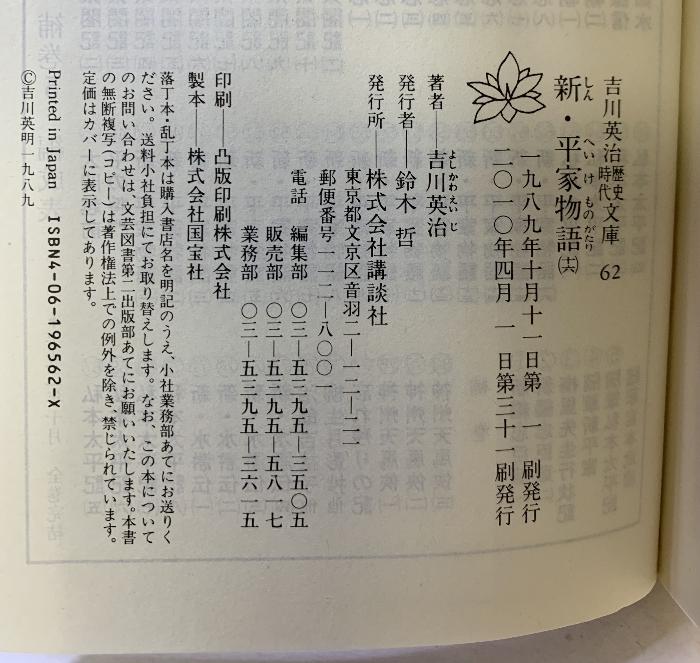 吉川英治歴史時代文庫 62
新・平家物語㈯
一九八九年十月十一日第一刷発行
二〇一〇年四月一日第三十一刷発行
著者―吉川英治
発行者―鈴木 哲
発行所―株式会社講談社
東京都文京区音羽二―一二―二一
郵便番号一一二―八〇〇一
電話 編集部 〇三―五三九五―三五〇五
販売部 〇三―五三九五―五八一七
業務部 〇三―五三九五―三六一五
印刷―凸版印刷株式会社
製本―株式会社国宝社
落丁本・乱丁本は購入書店名を明記のうえ、小社業務部あてにお送りく
ださい。送料小社負担にてお取り替えします。なお、この本について
のお問い合わせは、文芸図書第二出版部あてにお願いいたします。本書
の無断複写(コピー)は著作権法上での例外を除き、禁じられています。
定価はカバーに表示してあります。
Printed in Japan ISBN4-06-196562-X
©吉川英明一九八九